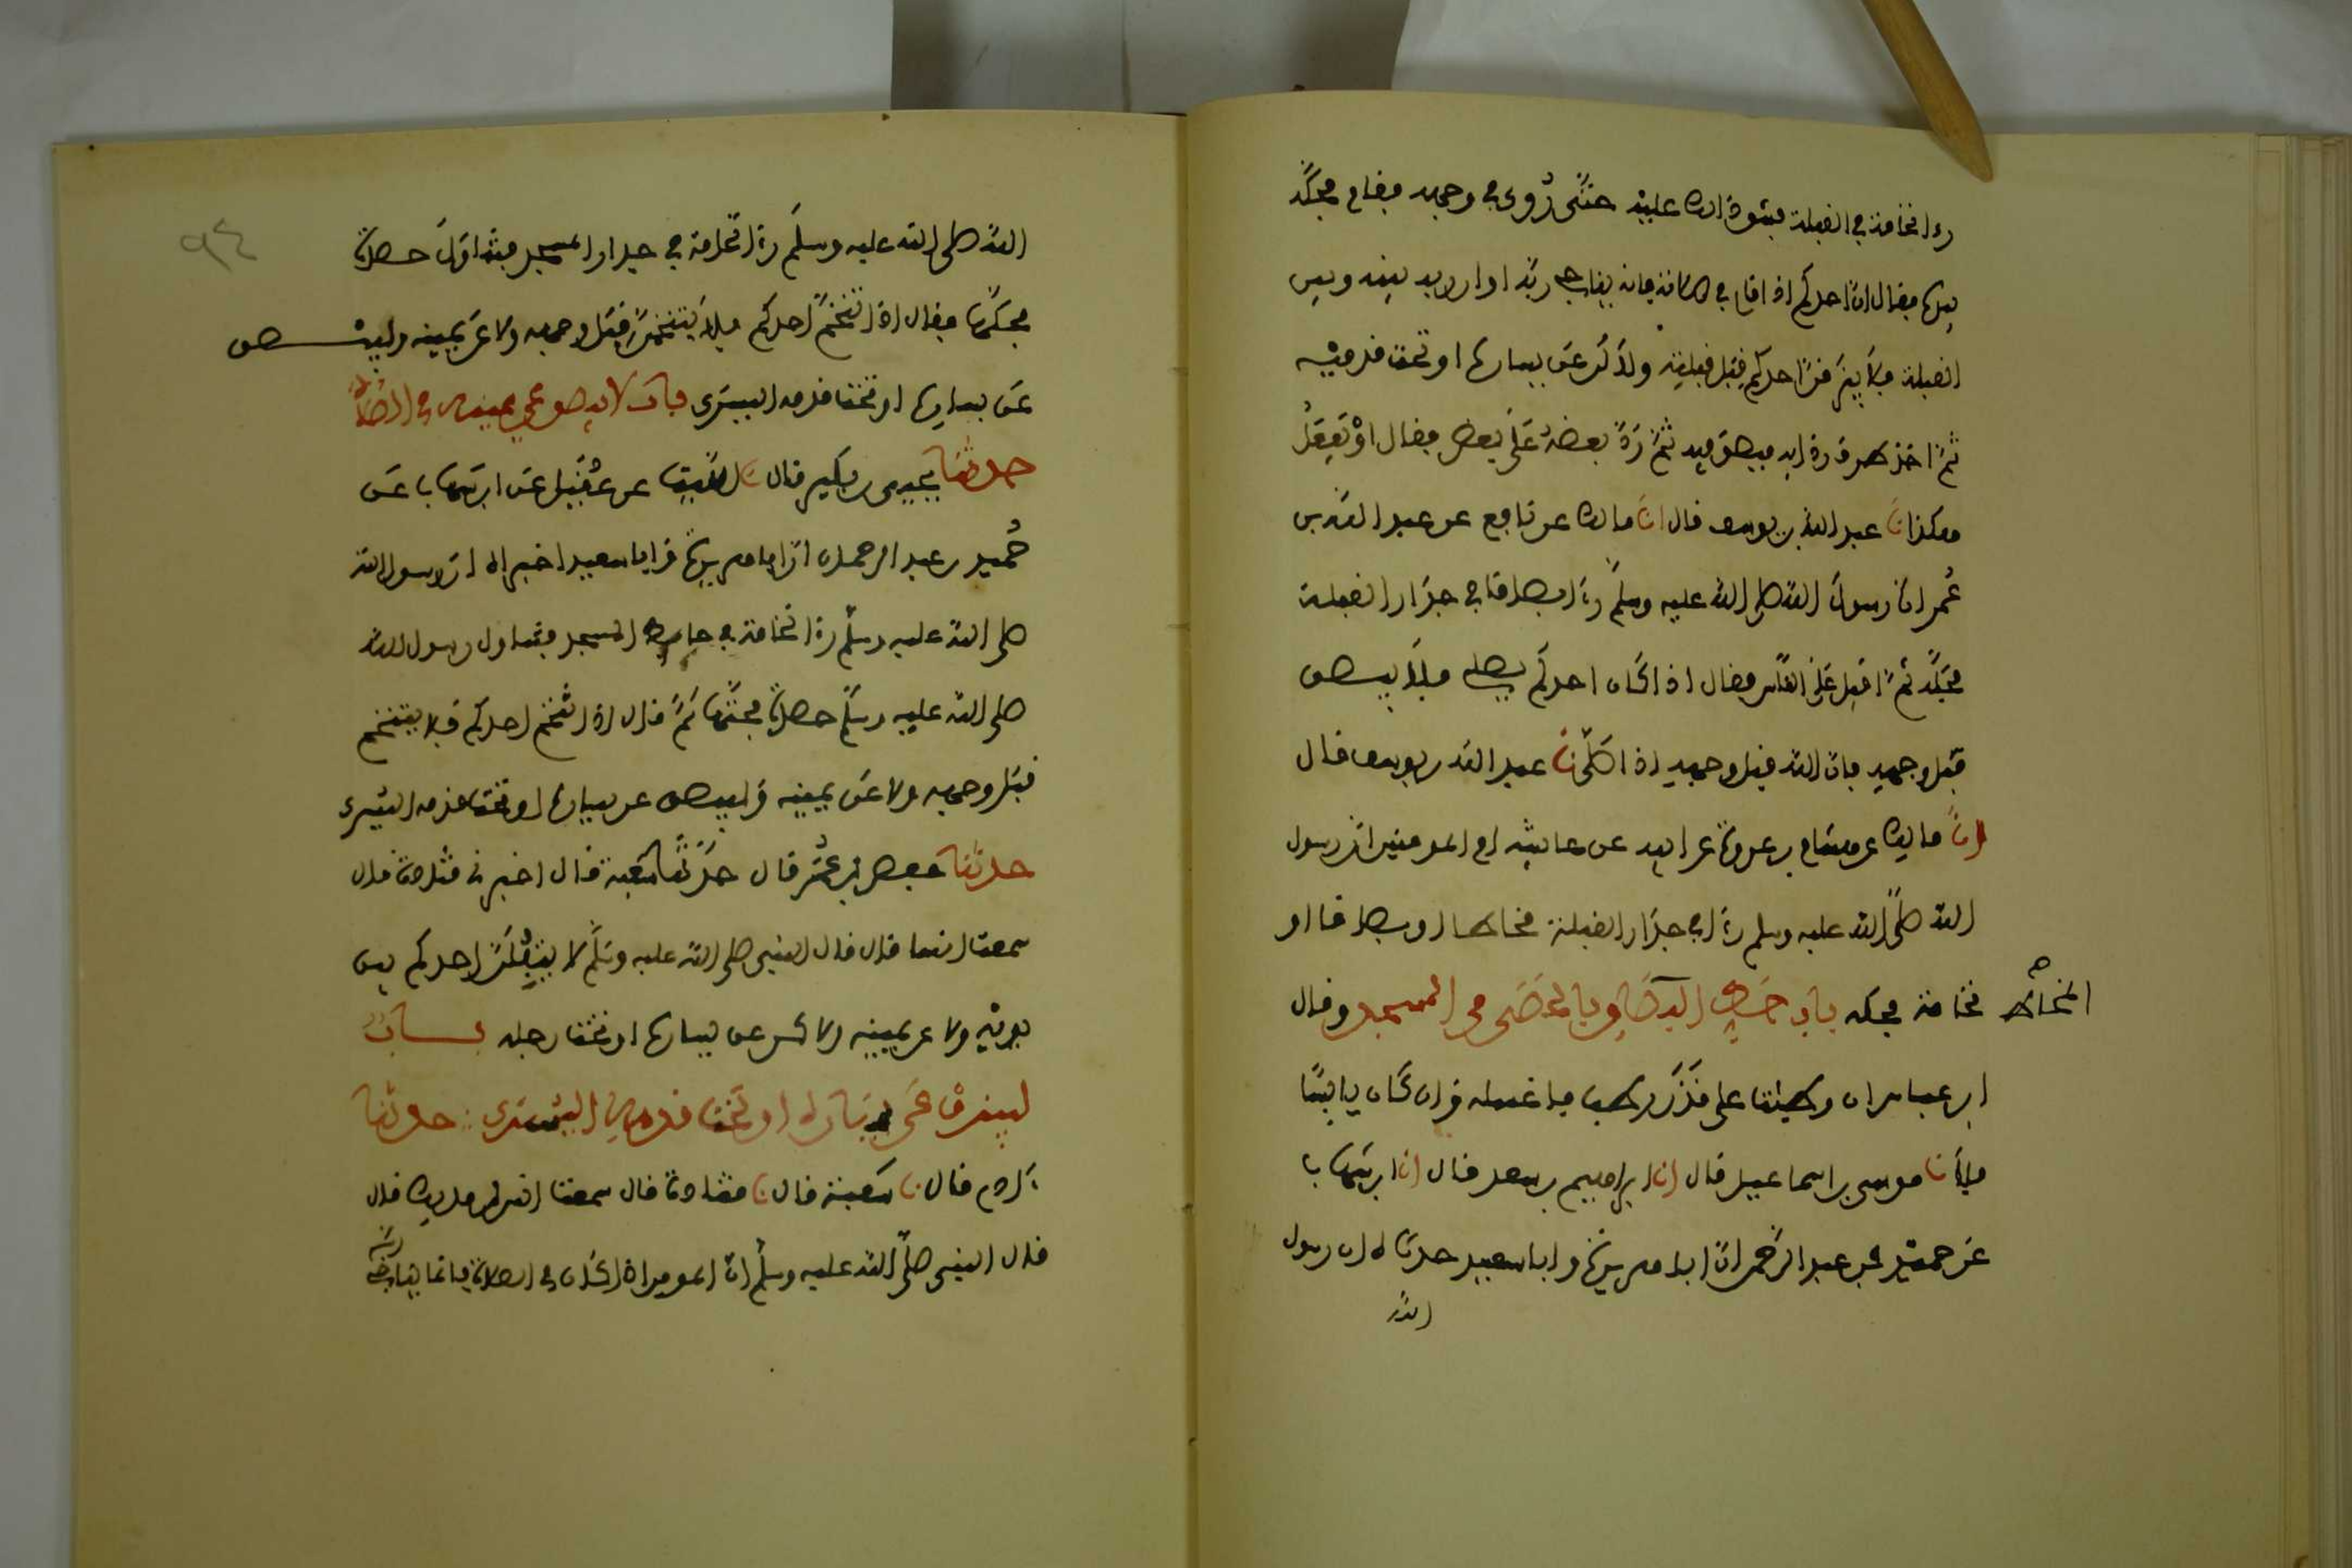 رءا نخامة في القبلة فشق ذلك عليه حتى رُوي في وجهه فقام فحكّه
بيده فقال ان احدكم اذا قام في صلاته فانه يناجي ربه او ان ربه بينه وبين
القبلة فلا يبزقن احدكم قِبَل قبلته ولاكن عن يساره او تحت قدميه
ثم اخذ طرف ردايه فبصق فيه ثم رَدّ بعضه على بعض فقال اوْ يفعل
هكذا نا عبد الله بن يوسف قال انا مالك عن نافع عن عبد الله بن
عُمر ان رسول الله صلى الله عليه وسلم رءا بصاقا في جدار القبلة
فحكّه ثم اقبل على الناس فقال اذا كان احدكم يصلي فلا يبصق
قبل وجهه فان الله قبل وجهه اذا صلّى نا عبد الله بن يوسف قال
انا مالك عن هشام بن عروة عن ابيه عن عايشة ام المومنين ان رسول
الله صلى الله عليه وسلم رءا في جدار القبلة مخاطا او بصاقا او
نخامة فحكه باب حك المخاط بالحصى من المسجد وقال
المخاط
ابن عباس ان وطيت على قذر رطب فاغسله وان كان يابسًا
فلا نا موسى بن اسماعيل قال انا ابراهيم بن سعد قال انا ابن شهاب
عن حميد بن عبد الرحمن ان ابا هريرة وابا سعيد حدثاه ان رسول
الله
٩٤
الله صلى الله عليه وسلم رءا نخامة في جدار المسجد فتناول حصاة
فحكّها فقال اذا تنخّم احدكم فلا يتنخمن قِبَل وجهه ولا عن يمينه وليبصق
عن يساره او تحت قدمه اليسرى باب لا يبصق عن يمينه في الصلاة
حدثنا يحيى بن بكير قال نا الليث عن عُقَيل عن ابن شهاب عن
حُميد بن عبد الرحمان ان ابا هريرة وابا سعيد اخبراه ان رسول الله
صلى الله عليه وسلم رءا نخامة في حايط المسجد فتناول رسول الله
صلى الله عليه وسلم حصاة فحتّها ثم قال اذا تنخم احدكم فلا يتنخم
قبل وجهه ولا عن يمينه وليبصق عن يساره او تحت قدمه اليسرى
حدثنا حفص بن عُمر قال حدّثنا شعبة قال اخبرني قتادة قال
سمعت انسا قال قال النبي صلى الله عليه وسلم لا يتفلن احدكم بين
يديه ولا عن يمينه ولاكن عن يساره او تحت رجله بــاب
ليبزق عن يساره او تحت قدمه اليسرى حدثنا
ءادم قال نا شعبة قال نا قتادة قال سمعت انس بن مالك قال
قال النبي صلّى الله عليه وسلم ان المومن اذا كان في الصلاة فانما يناجي
ربه